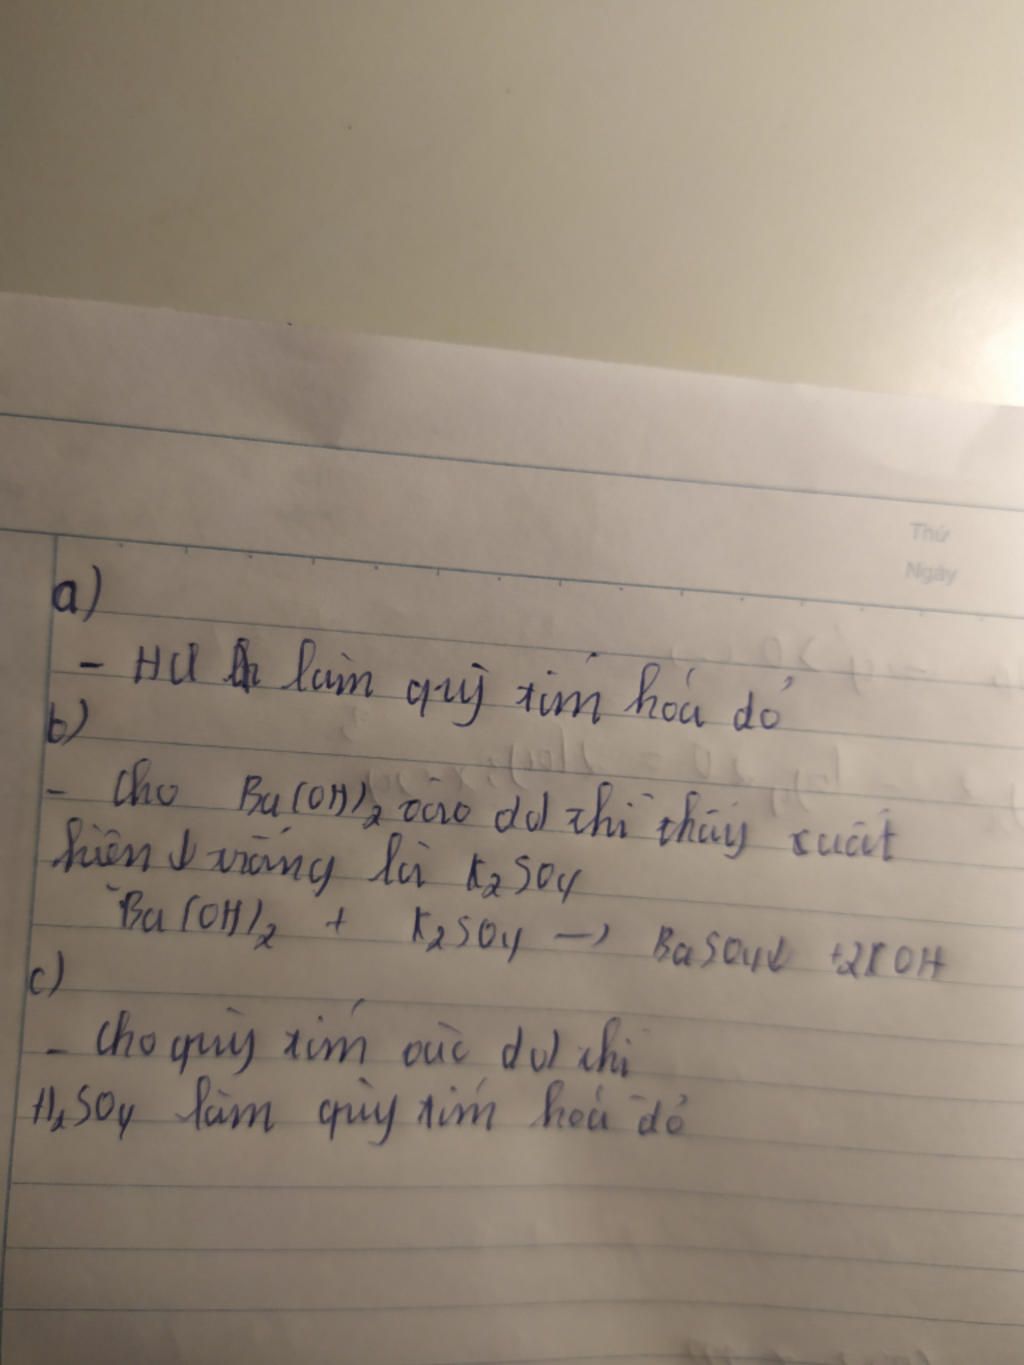 Thứ
Ngày
a)
- HCl làm quỳ tím hóa đỏ
b)
- Cho Ba(OH)₂ vào dd thì thấy xuất
hiện ↓ trắng là K₂SO₄
Ba(OH)₂ + K₂SO₄ → BaSO₄↓ +2KOH
c)
- Cho quỳ tím vào dd thì
H₂SO₄ làm quỳ tím hóa đỏ